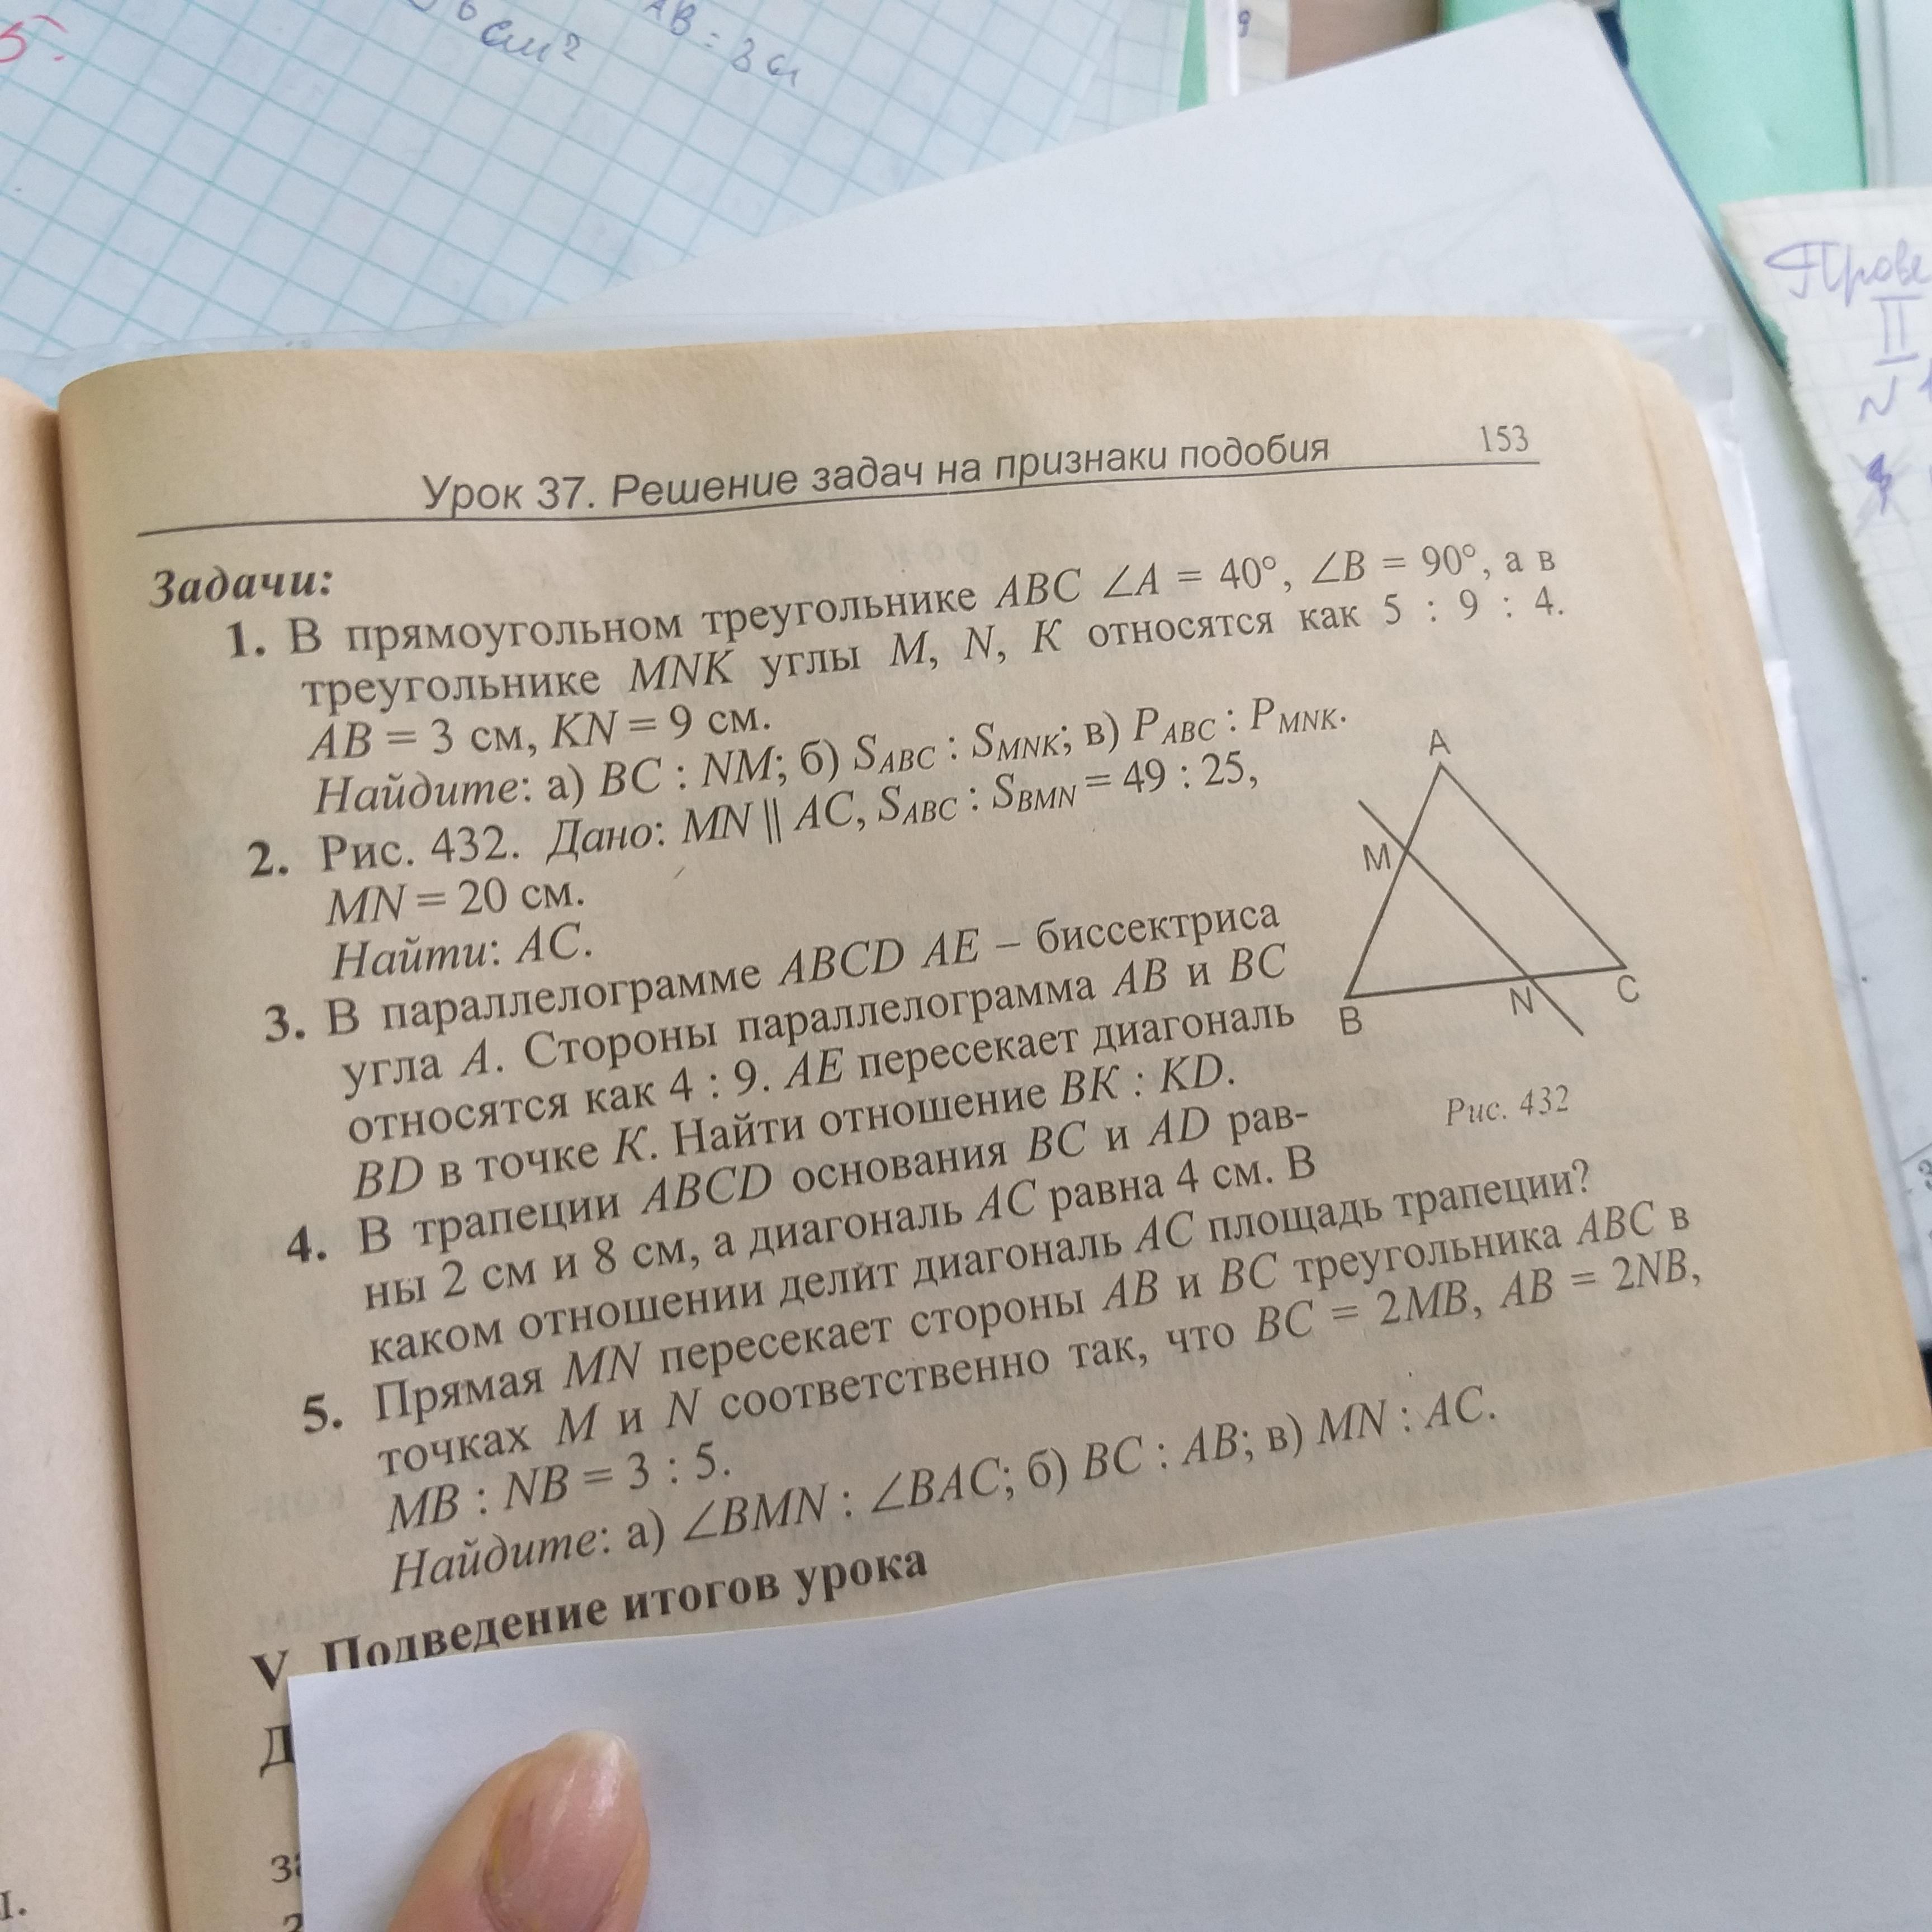 5.
6 см²
AB = 3 см
9
Прове
II
N 1
Урок 37. Решение задач на признаки подобия 153
Задачи:
1. В прямоугольном треугольнике ABC ∠A = 40°, ∠B = 90°, а в
треугольнике MNK углы M, N, K относятся как 5 : 9 : 4.
AB = 3 см, KN = 9 см.
Найдите: а) BC : NM; б) S_ABC : S_MNK; в) P_ABC : P_MNK.
2. Рис. 432. Дано: MN || AC, S_ABC : S_BMN = 49 : 25,
MN = 20 см.
Найти: AC.
3. В параллелограмме ABCD AE – биссектриса
угла A. Стороны параллелограмма AB и BC
относятся как 4 : 9. AE пересекает диагональ
BD в точке K. Найти отношение BK : KD.
4. В трапеции ABCD основания BC и AD рав-
ны 2 см и 8 см, а диагональ AC равна 4 см. В
каком отношении делит диагональ AC площадь трапеции?
5. Прямая MN пересекает стороны AB и BC треугольника ABC в
точках M и N соответственно так, что BC = 2MB, AB = 2NB,
MB : NB = 3 : 5.
Найдите: а) ∠BMN : ∠BAC; б) BC : AB; в) MN : AC.
A
M
B
N
C
Рис. 432
V. Подведение итогов урока
Д